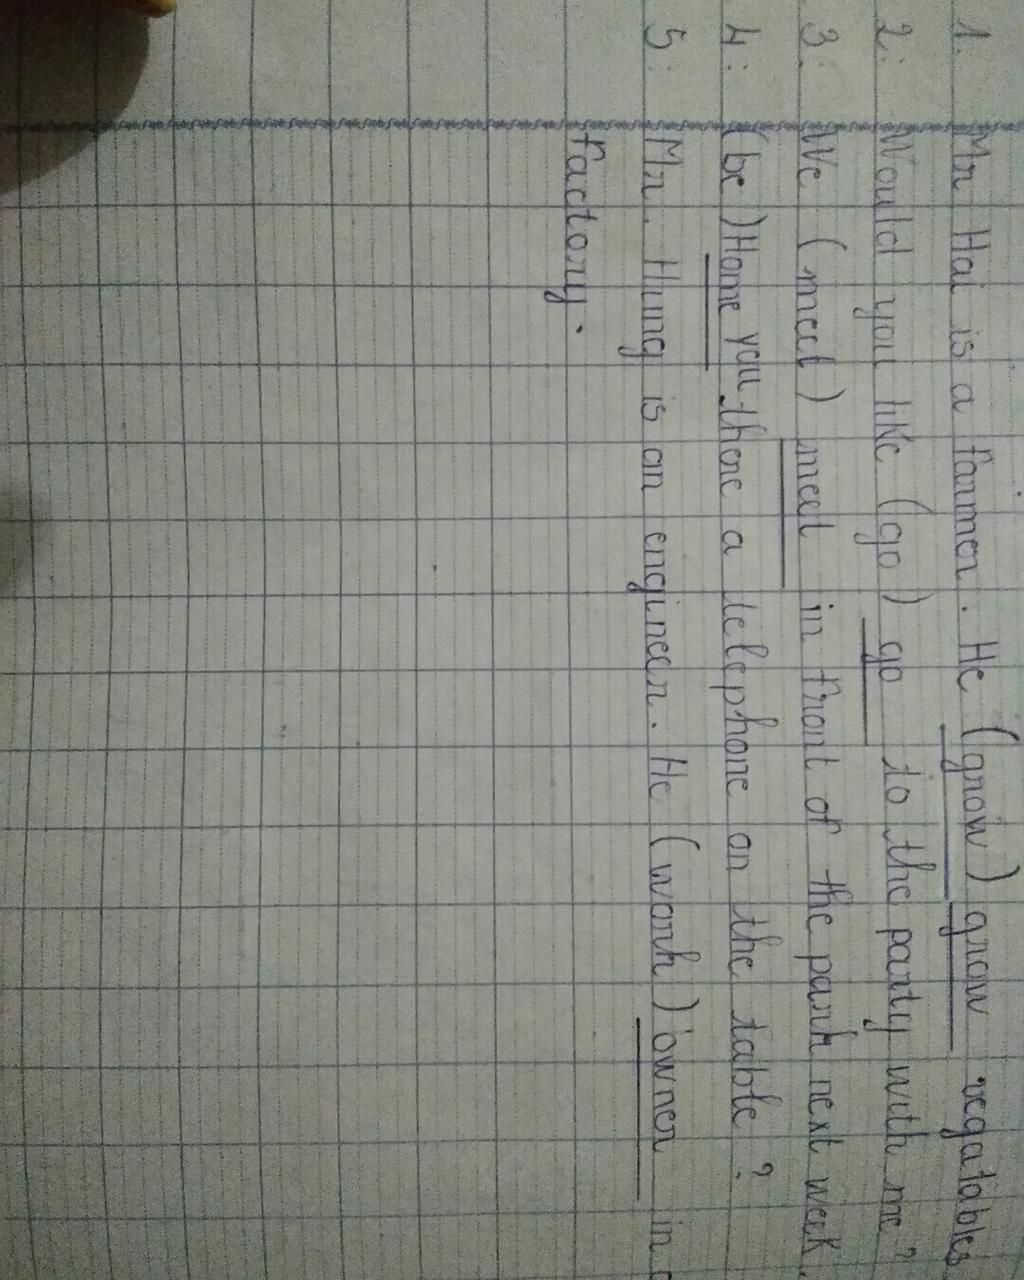 1. Mr Hai is a farmer. He (grow) grow vegatables
2: Would you like (go) go to the party with me?
3. We (meet) meet in front of the park next week.
4: (be) Home you there a telephone on the table?
5: Mr. Hung is an engineer. He (work) owner in
factory.